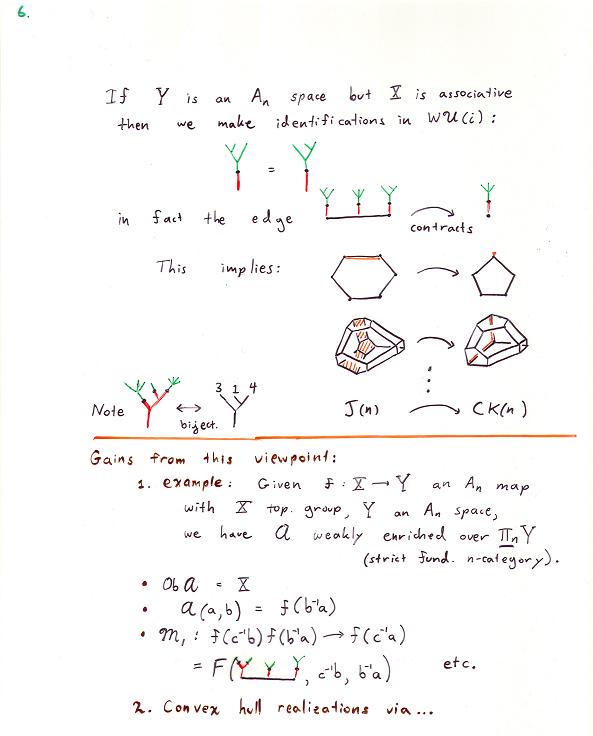 6.
If Y is an Aₙ space but X is associative
then we make identifications in W𝒰(i):
=
in fact the edge
contracts
This implies:
3 1 4
Note ↔ J(n) → CK(n)
biject.
Gains from this viewpoint:
1. example: Given f : X → Y an Aₙ map
with X top. group, Y an Aₙ space,
we have 𝒜 weakly enriched over ΠₙY
(strict fund. n-category).
• Ob 𝒜 = X
• 𝒜(a,b) = f(b⁻¹a)
• 𝓜₁ : f(c⁻¹b) f(b⁻¹a) → f(c⁻¹a)
= F( , c⁻¹b, b⁻¹a) etc.
2. Convex hull realizations via...